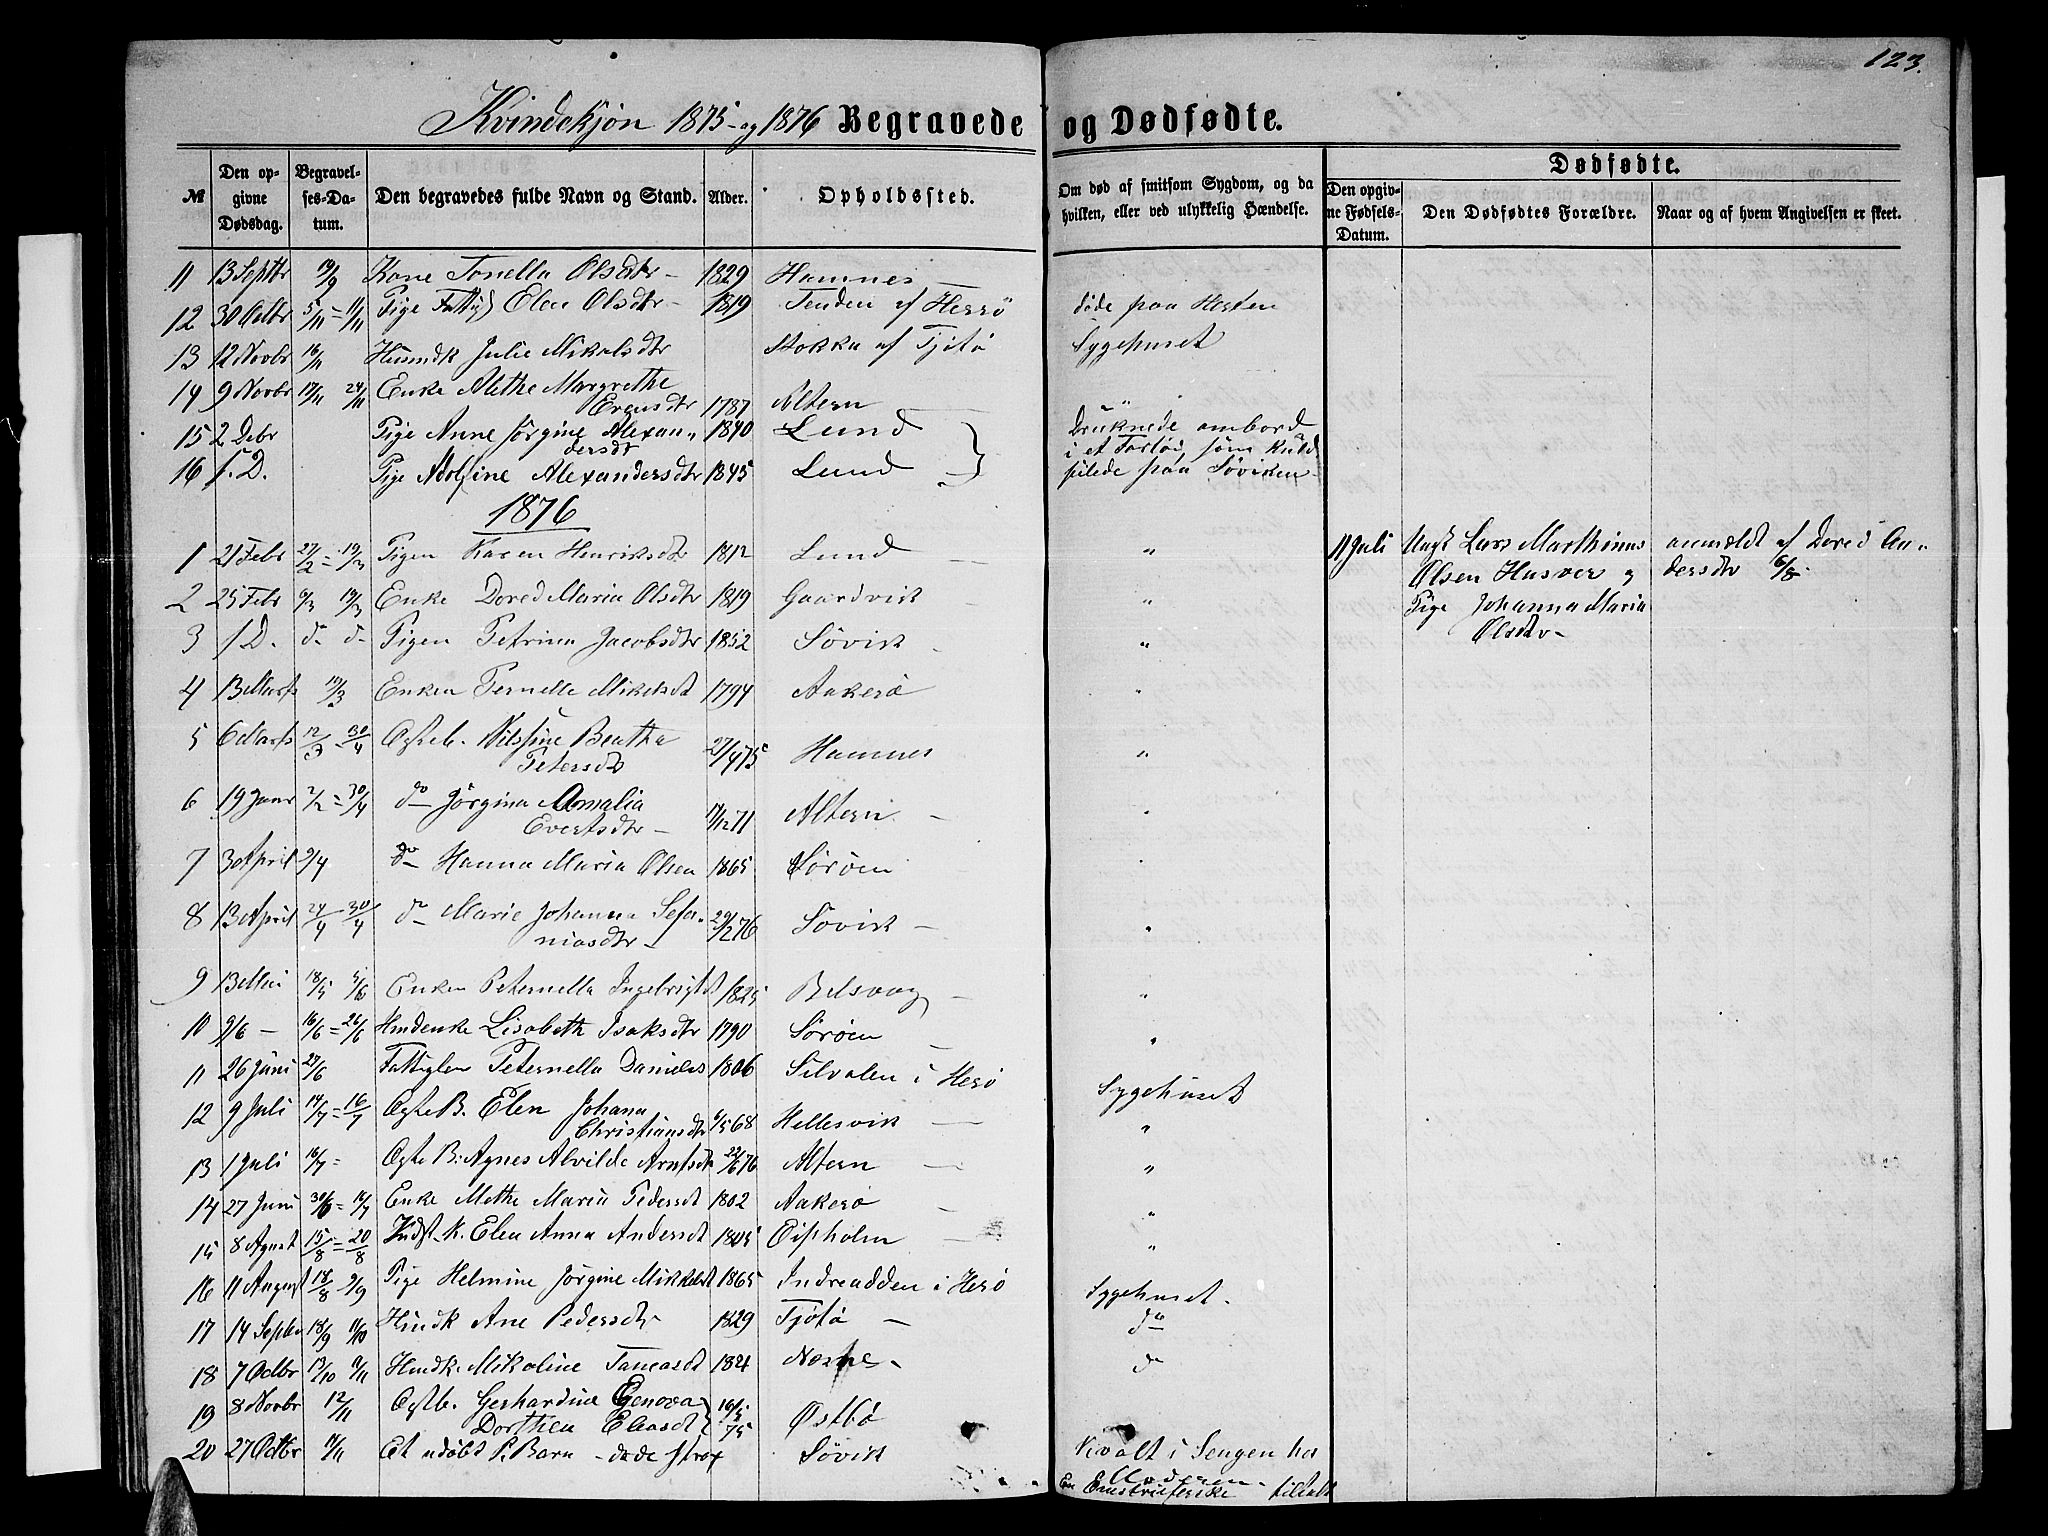 123.
Kvindekjøn 1875 og 1876 Begravede og Dødfødte.
№ Den opgivne Dødsdag. Begravelses-Datum. Den begravedes fulde Navn og Stand. Alder. Opholdssted. Om død af smitsom Sygdom, og da hvilken, eller ved ulykkelig Hændelse. Dødfødte. Den opgivne Fødsels-Datum. Den Dødfødtes Forældre. Naar og af hvem Angivelsen er skeet.
11 13 Septbr 19/9 Kone Tonella Olsdtr 1829 Hamnes
12 30 Octbr 5/11 = 11/11 Pige Fattig) Elen Olsdtr 1819 Tenden af Herrø døde paa Hesten
13 12 Novbr 16/11 Huusmdk Julie Mikalsdtr Stokka af Tjøtø Sygehuset
14 9 Novbr 17/11 24/11 Enke Alethe Margrethe
1787 Altern "
15 2 Debr Pige Anne Jørgine Alexan-
dersdt 1840 Lund Druknede ombord
i et Fartøi, som
16 f. D. Pige Adolfine Alexandersdtr 1845 Lund paa Søviken
1876
1 21 Febr 27/2 = 19/3 Pigen Karen Henriksdtr 1812 Lund " 11 Juli Ungk Lars Marthinus anmeldt af Dored An-
Olsen Husver og dersdtr 6/8
2 25 Febr 6/3 19/3 Enke Dored Maria Olsdtr 1819 Gaardvik " Pige Johanna Maria
Olsdtr
3 f. D. d d Pigen Petrina Jacobsdtr 1852 Søvik "
4 13 Marts 19/3 Enken Pernelle Mikelsdt 1794 Aakerø "
5 6 Marts 12/3 - 30/4 Ægteb. Nilsine Beatha
Petersdt 27/4 75 Hamnes "
6 19 Janr 2/2 = 30/4 do Jørgina Amalia
Evertsdtr 17/12 71 Altern "
7 3 April 9/4 do Hanna Maria Olsen 1865 Sørøen
8 13 April 24/4 30/4 do Marie Johanna Sefa-
niasdtr 29/2 76 Søvik "
9 13 Mai 18/5 5/6 Enken Peternella Ingebrigtdt 1825 Belsvaag "
10 9/6 16/6 = 26/6 Hmdenke Lisabeth Isaksdtr 1790 Sørøen "
11 26 Juni 29/6 Fattiglem Peternella Daniels 1806 Silvalen i Herø Sygehuset
12 9 Juli 14/7 = 16/7 Ægte B. Elen Johana
Christiansdtr 6/5 68 Hellesvik "
13 1 Juli 16/7 Ægte B. Agnes Alvilde Arntsdt 22/6 76 Altern "
14 27 Juni 30/6 = 16/7 Enke Methe Maria Pedersdt 1802 Aakerø "
15 8 Agust 15/8 = 20/8 Indst. K. Elen Anna Andersdt 1805 "
16 11 August 18/8 9/9 Pige Helmine Jørgine Mikkelsdt 1865 i Herø Sygehuset.
17 14 Septbr 18/9 11/10 Hmdk Ane Pedersdtr 1829 Tjøtø do
18 7 Octbr 13/10 Hmdk. Mikoline 1824 d
19 8 Novbr 12/11 Ægteb. Gerharding Genova
Dorthea Eliasdt 75 Østbø
20 27 Octbr Et udøbt P. Barn døde strax Søvik Kvalt i Sengen hos
Moderen